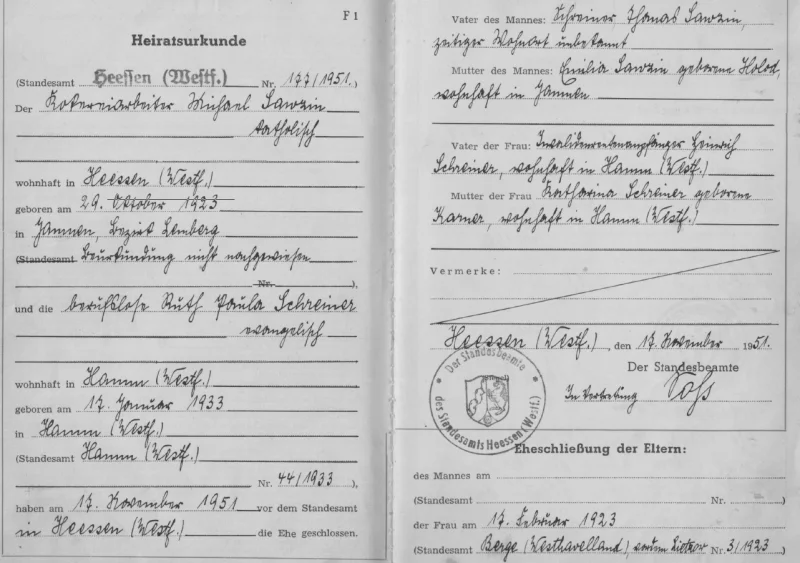 F 1
Heiratsurkunde
(Standesamt Heessen (Westf.) Nr. 177/1951.)
Der Kokereiarbeiter Michael Sawzin
katholisch
wohnhaft in Heessen (Westf.)
geboren am 29. Oktober 1923
in Jamnen, Bezirk Lemberg
(Standesamt Beurkundung nicht nachgewiesen
Nr. ),
und die berufslose Ruth Paula Schreiner
evangelisch
wohnhaft in Hamm (Westf.)
geboren am 17. Januar 1933
in Hamm (Westf.)
(Standesamt Hamm (Westf.)
Nr. 44/1933.)
haben am 17. November 1951 vor dem Standesamt
in Heessen (Westf.) die Ehe geschlossen.
Vater des Mannes: Schreiner Thomas Sawzin,
zeitiger Wohnort unbekannt
Mutter des Mannes: Emilia Sawzin geborene Holod,
wohnhaft in Jamnen
Vater der Frau: Invalidenrentenempfänger Heinrich
Schreiner, wohnhaft in Hamm (Westf.)
Mutter der Frau Katharina Schreiner geborene
Karner, wohnhaft in Hamm (Westf.)
Vermerke:
Heessen (Westf.), den 17. November 1951.
Der Standesbeamte
In Vertretung Voß
Der Standesbeamte
des Standesamts Heessen (Westf.)
Eheschließung der Eltern:
des Mannes am
(Standesamt Nr. )
der Frau am 17. Februar 1923
(Standesamt Berge (Westhavelland) Nr. 3/1923)